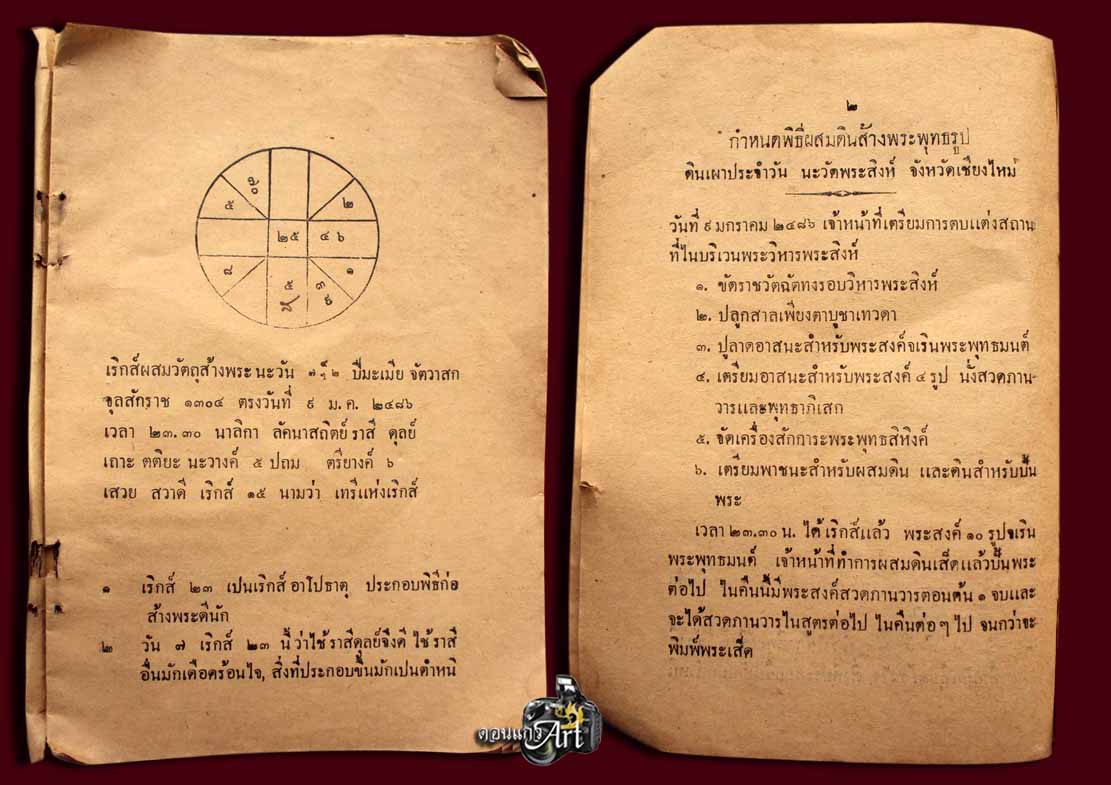 ๗๐
๕
๒
๒๕
๔ ๖
๘
๕
๓
๑
เริกส์ผสมวัตถุส้างพระ นะวัน ๗ ๒ ปีมะเมีย จัตวาสก
จุลสักราช ๑๓๐๔ ตรงวันที่ ๙ ม.ค. ๒๔๘๖
เวลา ๒๓.๓๐ นาลิกา ลัคนาสถิตย์ ราสี ดุลย์
เถาะ ตติยะ นะวางค์ ๕ ปถม ตรียางค์ ๖
เสวย สวาตี เริกส์ ๑๕ นามว่า เทรีแห่งเริกส์
๑ เริกส์ ๒๓ เปนเริกส์ อาโปธาตุ ประกอบพิธีก่อ
ส้างพระดีนัก
๒ วัน ๗ เริกส์ ๒๓ นี้ ว่าไช้ ราสีดุลย์จึงดี ไช้ ราสี
อื่นมักเดือดร้อนไจ, สิ่งที่ประกอบขึ้นมักเปนตำหนิ
๒
กำหนดพิธีผสมดินส้างพระพุทธรูป
ดินเผาประจำวัน นะวัดพระสิงห์ จังหวัดเชียงไหม่
วันที่ ๙ มกราคม ๒๔๘๖ เจ้าหน้าที่เตรียมการตบแต่งสถาน
ที่ไนบริเวนพระวิหารพระสิงห์
๑. ขัดราชวัตฉัตทงรอบวิหารพระสิงห์
๒. ปลูกสาลเพียงตาบูชาเทวดา
๓. ปูลาดอาสนะสำหรับพระสงค์จเรินพระพุทธมนต์
๔. เตรียมอาสนะสำหรับพระสงค์ ๔ รูป นั่งสวดภาน-
วารและพุทธาภิเสก
๕. จัดเครื่องสักการะพระพุทธสิหิงค์
๖. เตรียมพาชนะสำหรับผสมดิน และดินสำหรับปั้น
พระ
เวลา ๒๓.๓๐ น. ได้เริกส์แล้ว พระสงค์ ๑๐ รูปจเริน
พระพุทธมนต์ เจ้าหน้าที่ทำการผสมดินเส็ดแล้วปั้นพระ
ต่อไป ไนคืนนี้มีพระสงค์สวดภานวารตอนต้น ๑ จบและ
จะได้สวดภานวารไนสูตรต่อไป ไนคืนต่อๆ ไป จนกว่าจะ
พิมพ์พระเส็ด
ดอนแก้ว
Art